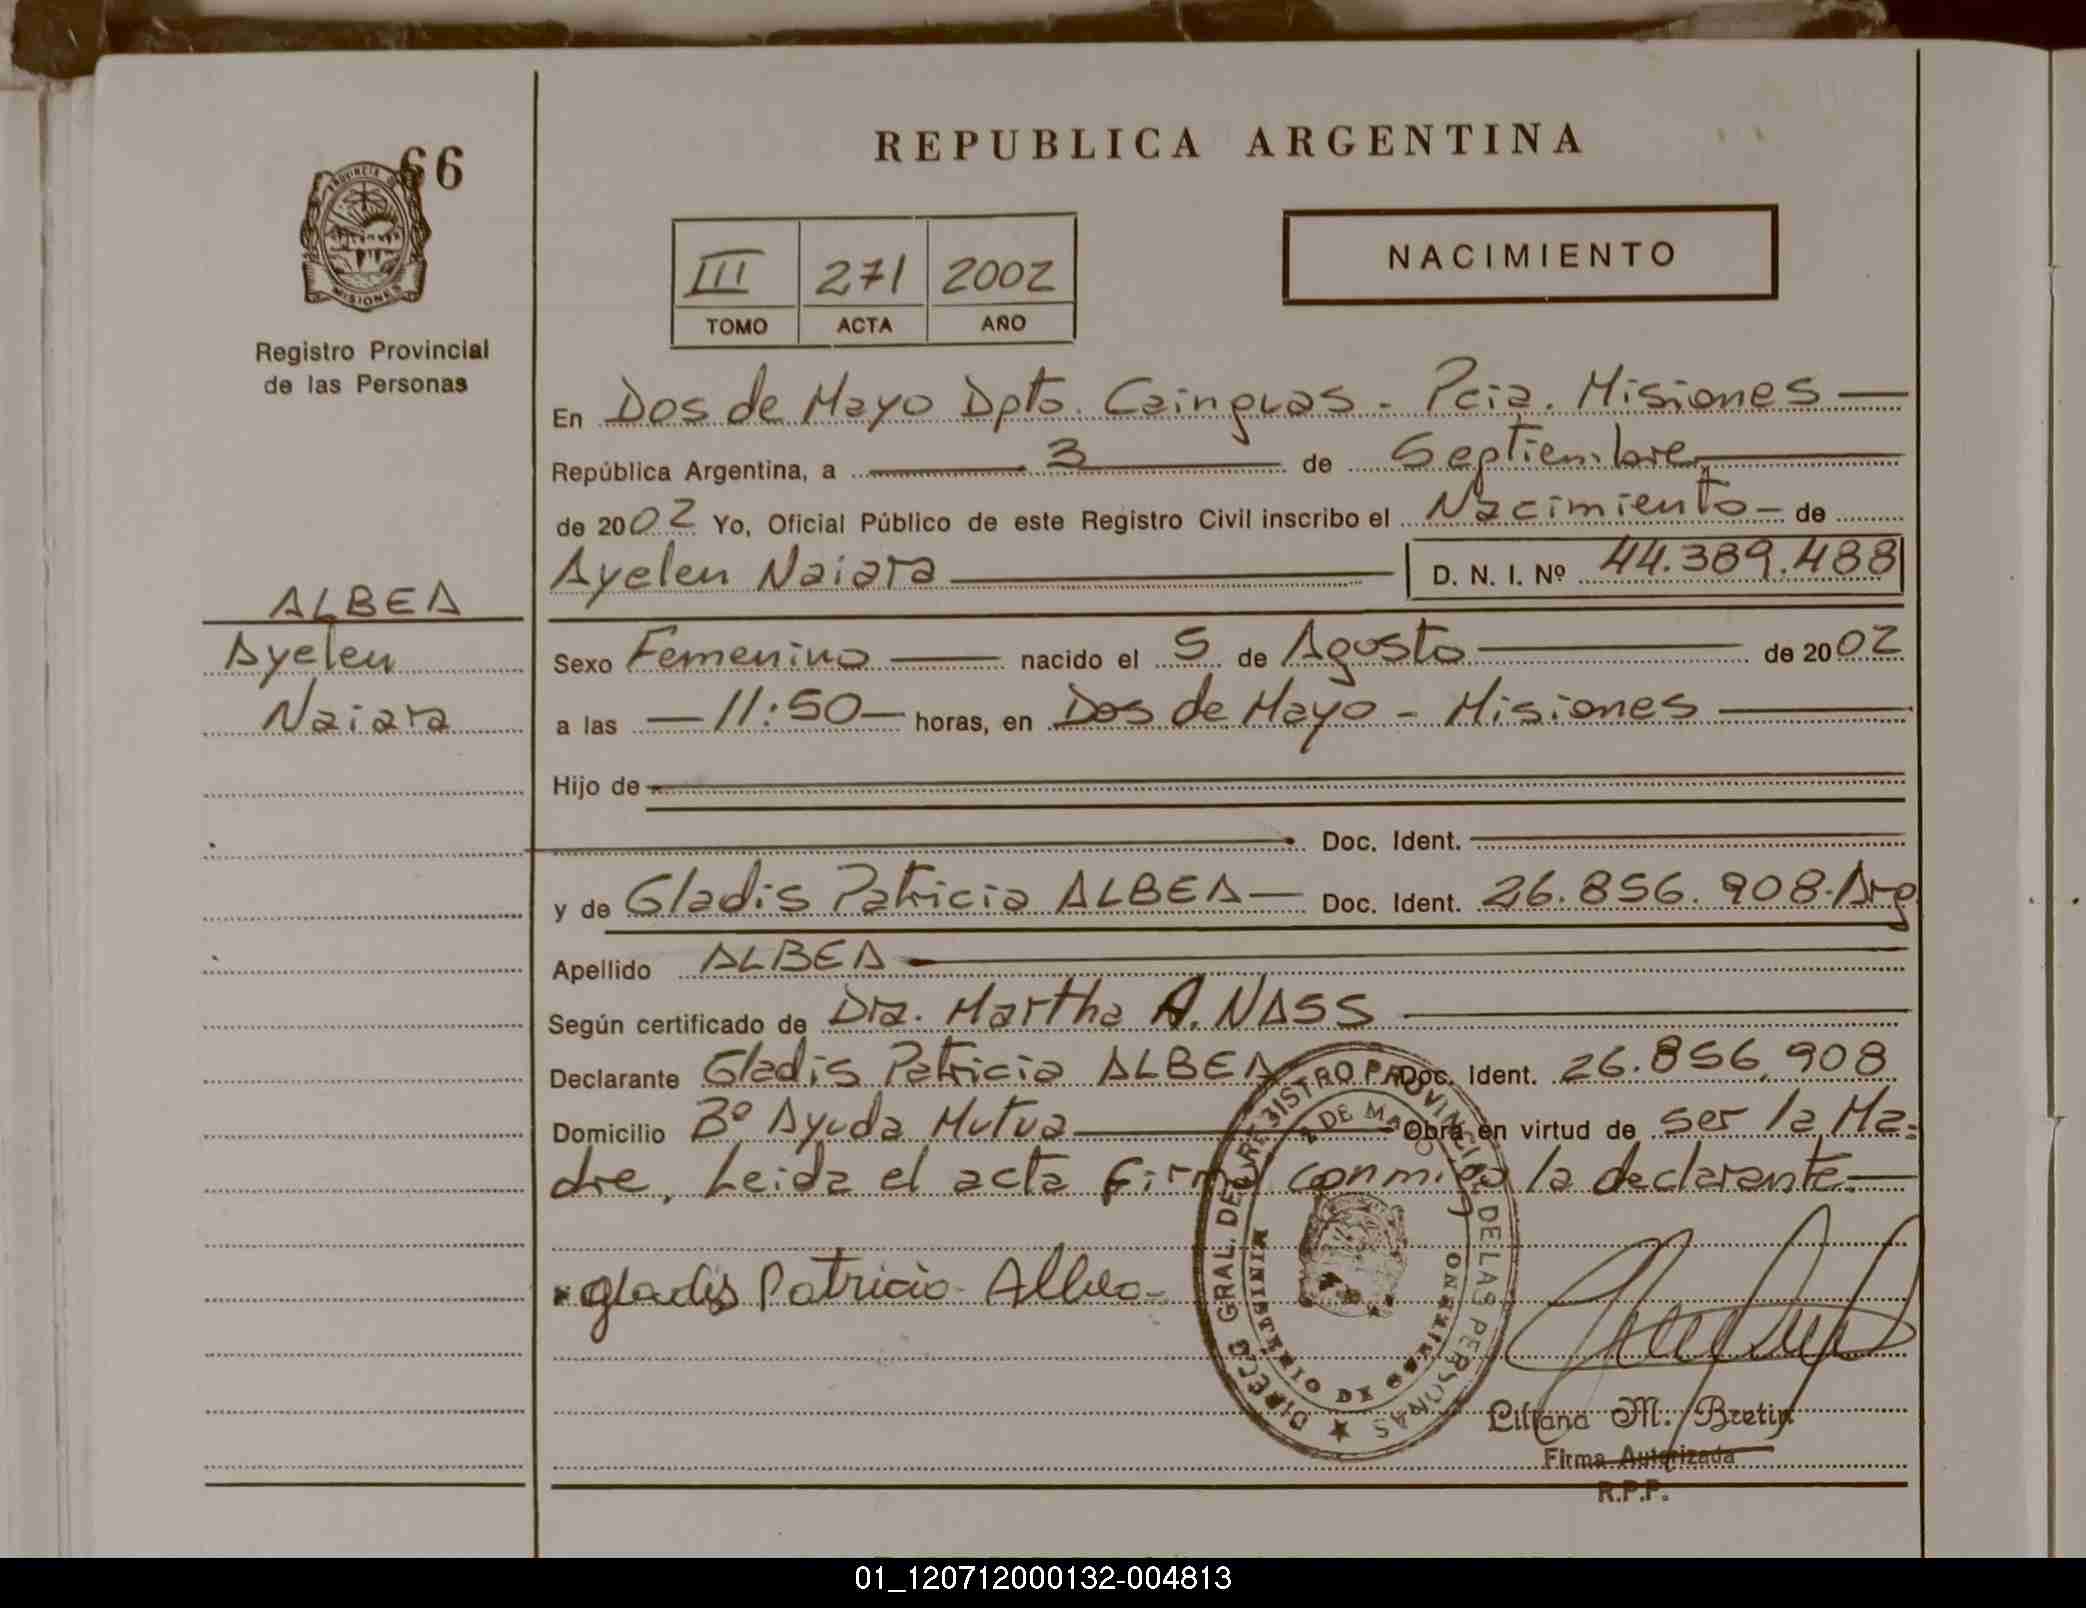 66
PROVINCIA DE
MISIONES
Registro Provincial
de las Personas
REPUBLICA ARGENTINA
III 271 2002
TOMO ACTA AÑO
NACIMIENTO
En Dos de Mayo Dpto. Cainguas - Pcia. Misiones
República Argentina, a 3 de Septiembre
de 2002 Yo, Oficial Público de este Registro Civil inscribo el Nacimiento - de
Ayelen Naiara D. N. I. Nº 44.389.488
ALBEA
Ayelen
Naiara
Sexo Femenino nacido el 5 de Agosto de 2002
a las 11:50 horas, en Dos de Mayo - Misiones
Hijo de
Doc. Ident.
y de Gladis Patricia ALBEA Doc. Ident. 26.856.908-Arg
Apellido ALBEA
Según certificado de Dra. Martha A. NASS
Declarante Gladis Patricia ALBEA Doc. Ident. 26.856.908
Domicilio Bº Ayuda Mutua Obra en virtud de ser la Ma=
dre, Leida el acta firma conmigo la declarante.
Gladis Patricia Albea
DIRECC GRAL. DEL REGISTRO PROVINCIAL DE LAS PERSONAS
2 DE MAYO
MINISTERIO DE GOBIERNO
Liliana M. Bretin
Firma Autorizada
R.P.P.
01_120712000132-004813